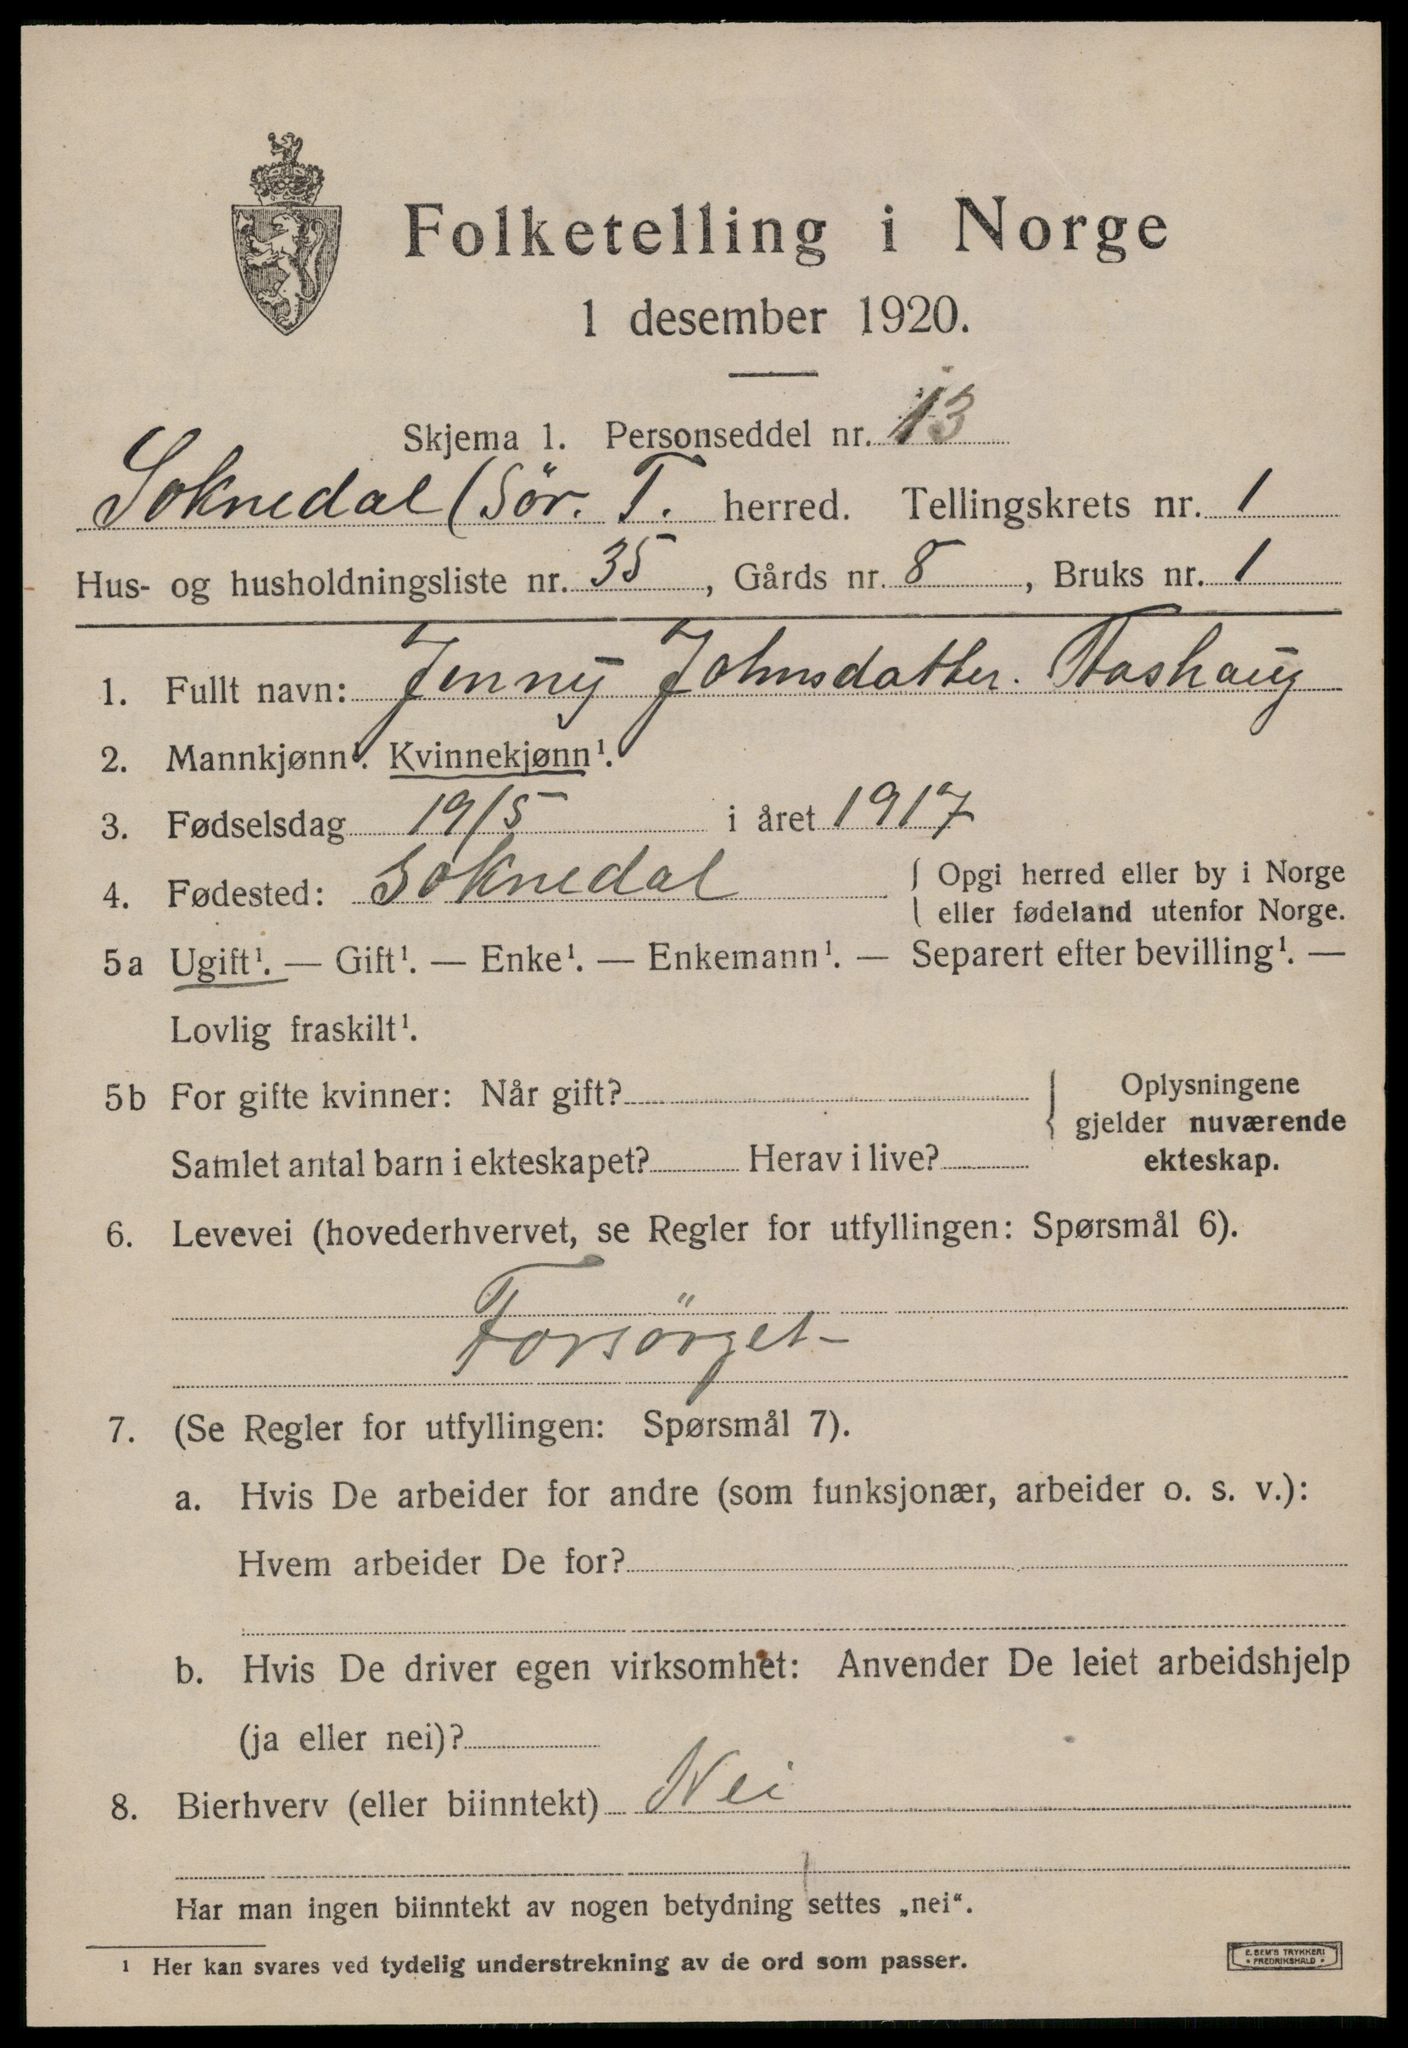 Folketelling i Norge
1 desember 1920.
Skjema 1. Personseddel nr. 13
Soknedal (Sör. T. herred. Tellingskrets nr. 1
Hus- og husholdningsliste nr. 35, Gårds nr. 8, Bruks nr. 1
1. Fullt navn: Jenny Johnsdatter.
2. Mannkjønn¹. Kvinnekjønn¹.
3. Fødselsdag 19/5 i året 1917
4. Fødested: Soknedal { Opgi herred eller by i Norge
eller fødeland utenfor Norge.
5a Ugift¹. — Gift¹. — Enke¹. — Enkemann¹. — Separert efter bevilling¹. —
Lovlig fraskilt¹.
5b For gifte kvinner: Når gift? { Oplysningene
gjelder nuværende
Samlet antal barn i ekteskapet? Herav i live? ekteskap.
6. Levevei (hovederhvervet, se Regler for utfyllingen: Spørsmål 6).
Forsörget
7. (Se Regler for utfyllingen: Spørsmål 7).
a. Hvis De arbeider for andre (som funksjonær, arbeider o. s. v.):
Hvem arbeider De for?
b. Hvis De driver egen virksomhet: Anvender De leiet arbeidshjelp
(ja eller nei)?
8. Bierhverv (eller biinntekt) Nei
Har man ingen biinntekt av nogen betydning settes „nei“.
¹ Her kan svares ved tydelig understrekning av de ord som passer.
E. SEM'S TRYKKERI
• FREDRIKSHALD •